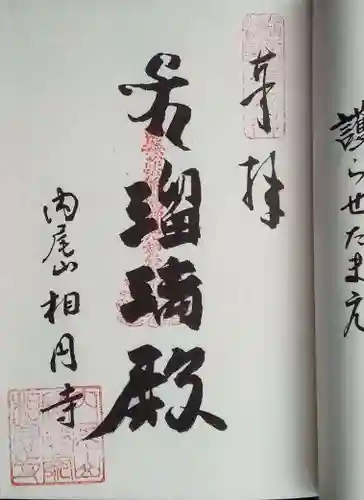 護らせたまえ
奉拝
瑠璃殿
内尾山相円寺